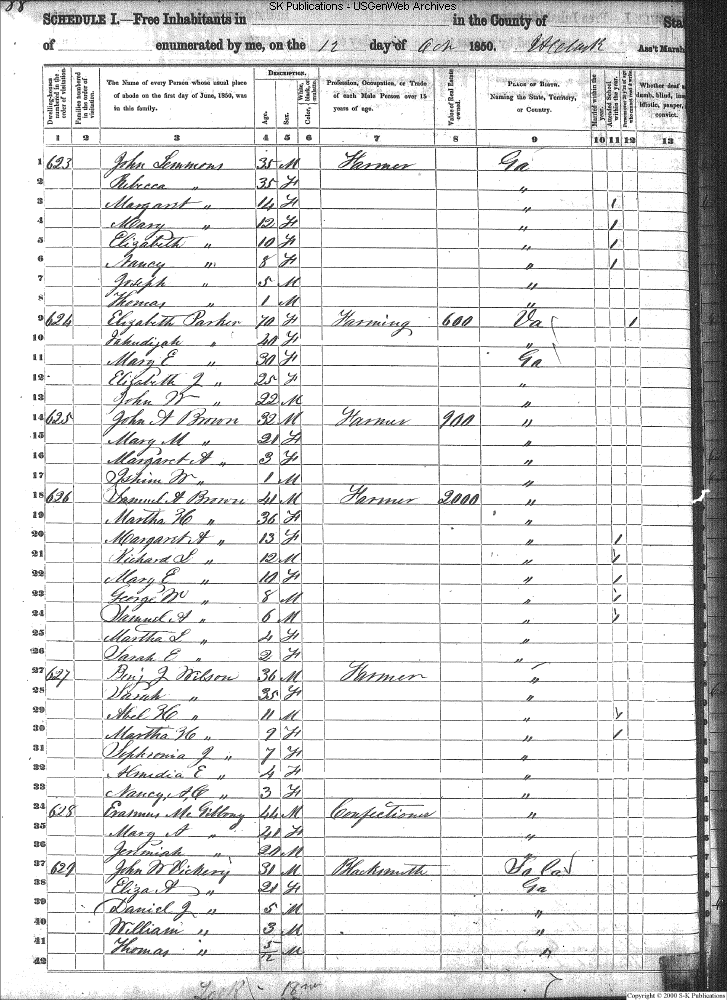 88
SK Publications - USGenWeb Archives
SCHEDULE I.—Free Inhabitants in in the County of Sta
of enumerated by me, on the 12 day of Oct 1850. Ass't Marsh
Dwelling-houses numbered in the order of visitation.
Families numbered in the order of visitation.
The Name of every Person whose usual place of abode on the first day of June, 1850, was in this family.
DESCRIPTION.
Age.
Sex.
White, black, or mulatto.
Color,
Profession, Occupation, or Trade of each Male Person over 15 years of age.
Value of Real Estate owned.
PLACE OF BIRTH.
Naming the State, Territory, or Country.
Married within the year.
Attended School within the year.
Whether deaf a dumb, blind, ins idiotic, pauper, convict.
1 2 3 4 5 6 7 8 9 10 11 12 13
1 623 John Lemmons 35 M Farmer Ga
2 Rebecca " 35 F "
3 Margaret " 14 F " 1
4 Mary " 12 F " 1
5 Elizabeth " 10 F " 1
6 Nancy " 8 F " 1
7 Joseph " 5 M "
8 Thomas " 1 M "
9 624 Elizabeth Parker 70 F Farming 600 Va 1
10 " 40 F "
11 Mary E " 30 F Ga
12 Elizabeth J " 25 F "
13 John W " 22 M "
14 625 John A Brown 32 M Farmer 900 "
15 Mary M " 21 F "
16 Margaret A " 3 F "
17 W " 1 M "
18 626 Samuel A Brown 41 M Farmer 2000 "
19 Martha H " 36 F "
20 Margaret A " 13 F " 1
21 Richard L " 12 M " 1
22 Mary E " 10 F " 1
23 George W " 8 M " 1
24 Samuel A " 6 M " 1
25 Martha L " 4 F "
26 Sarah E " 2 F "
27 627 Benj J Wilson 36 M Farmer "
28 Sarah " 35 F "
29 Abel H " 11 M " 1
30 Martha H " 9 F " 1
31 Sophronia J " 7 F "
32 Almedia E " 4 F "
33 Nancy A C " 3 F "
34 628 Erasmus McGibbony 44 M Confectioner "
35 Mary A " 41 F "
36 Jerimiah " 20 M
37 629 John W Vickery 31 M Blacksmith
38 Eliza A " 21 F Ga
39 Daniel J " 5 M "
40 William " 3 M "
41 Thomas " 5/12 M "
42
Copyright © 2000 S-K Publications